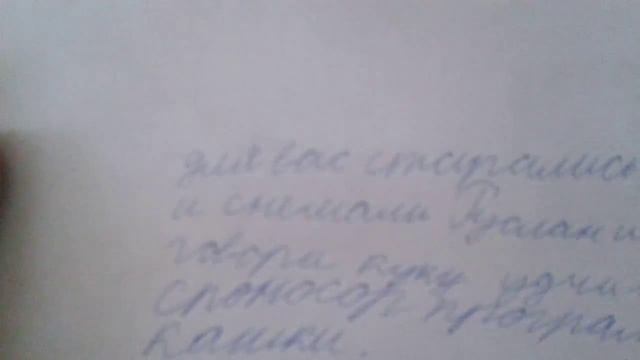 для вас старались
и снимали Руслан и
говора куку удчи
споносор програм
Кашки.